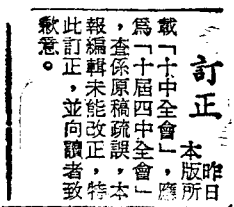 訂正
昨日
本版所
載「十中全會」，應
為「十屆四中全會」
，查係原稿疏誤，本
報編輯未能改正，特
此訂正，並向讀者致
歉意。